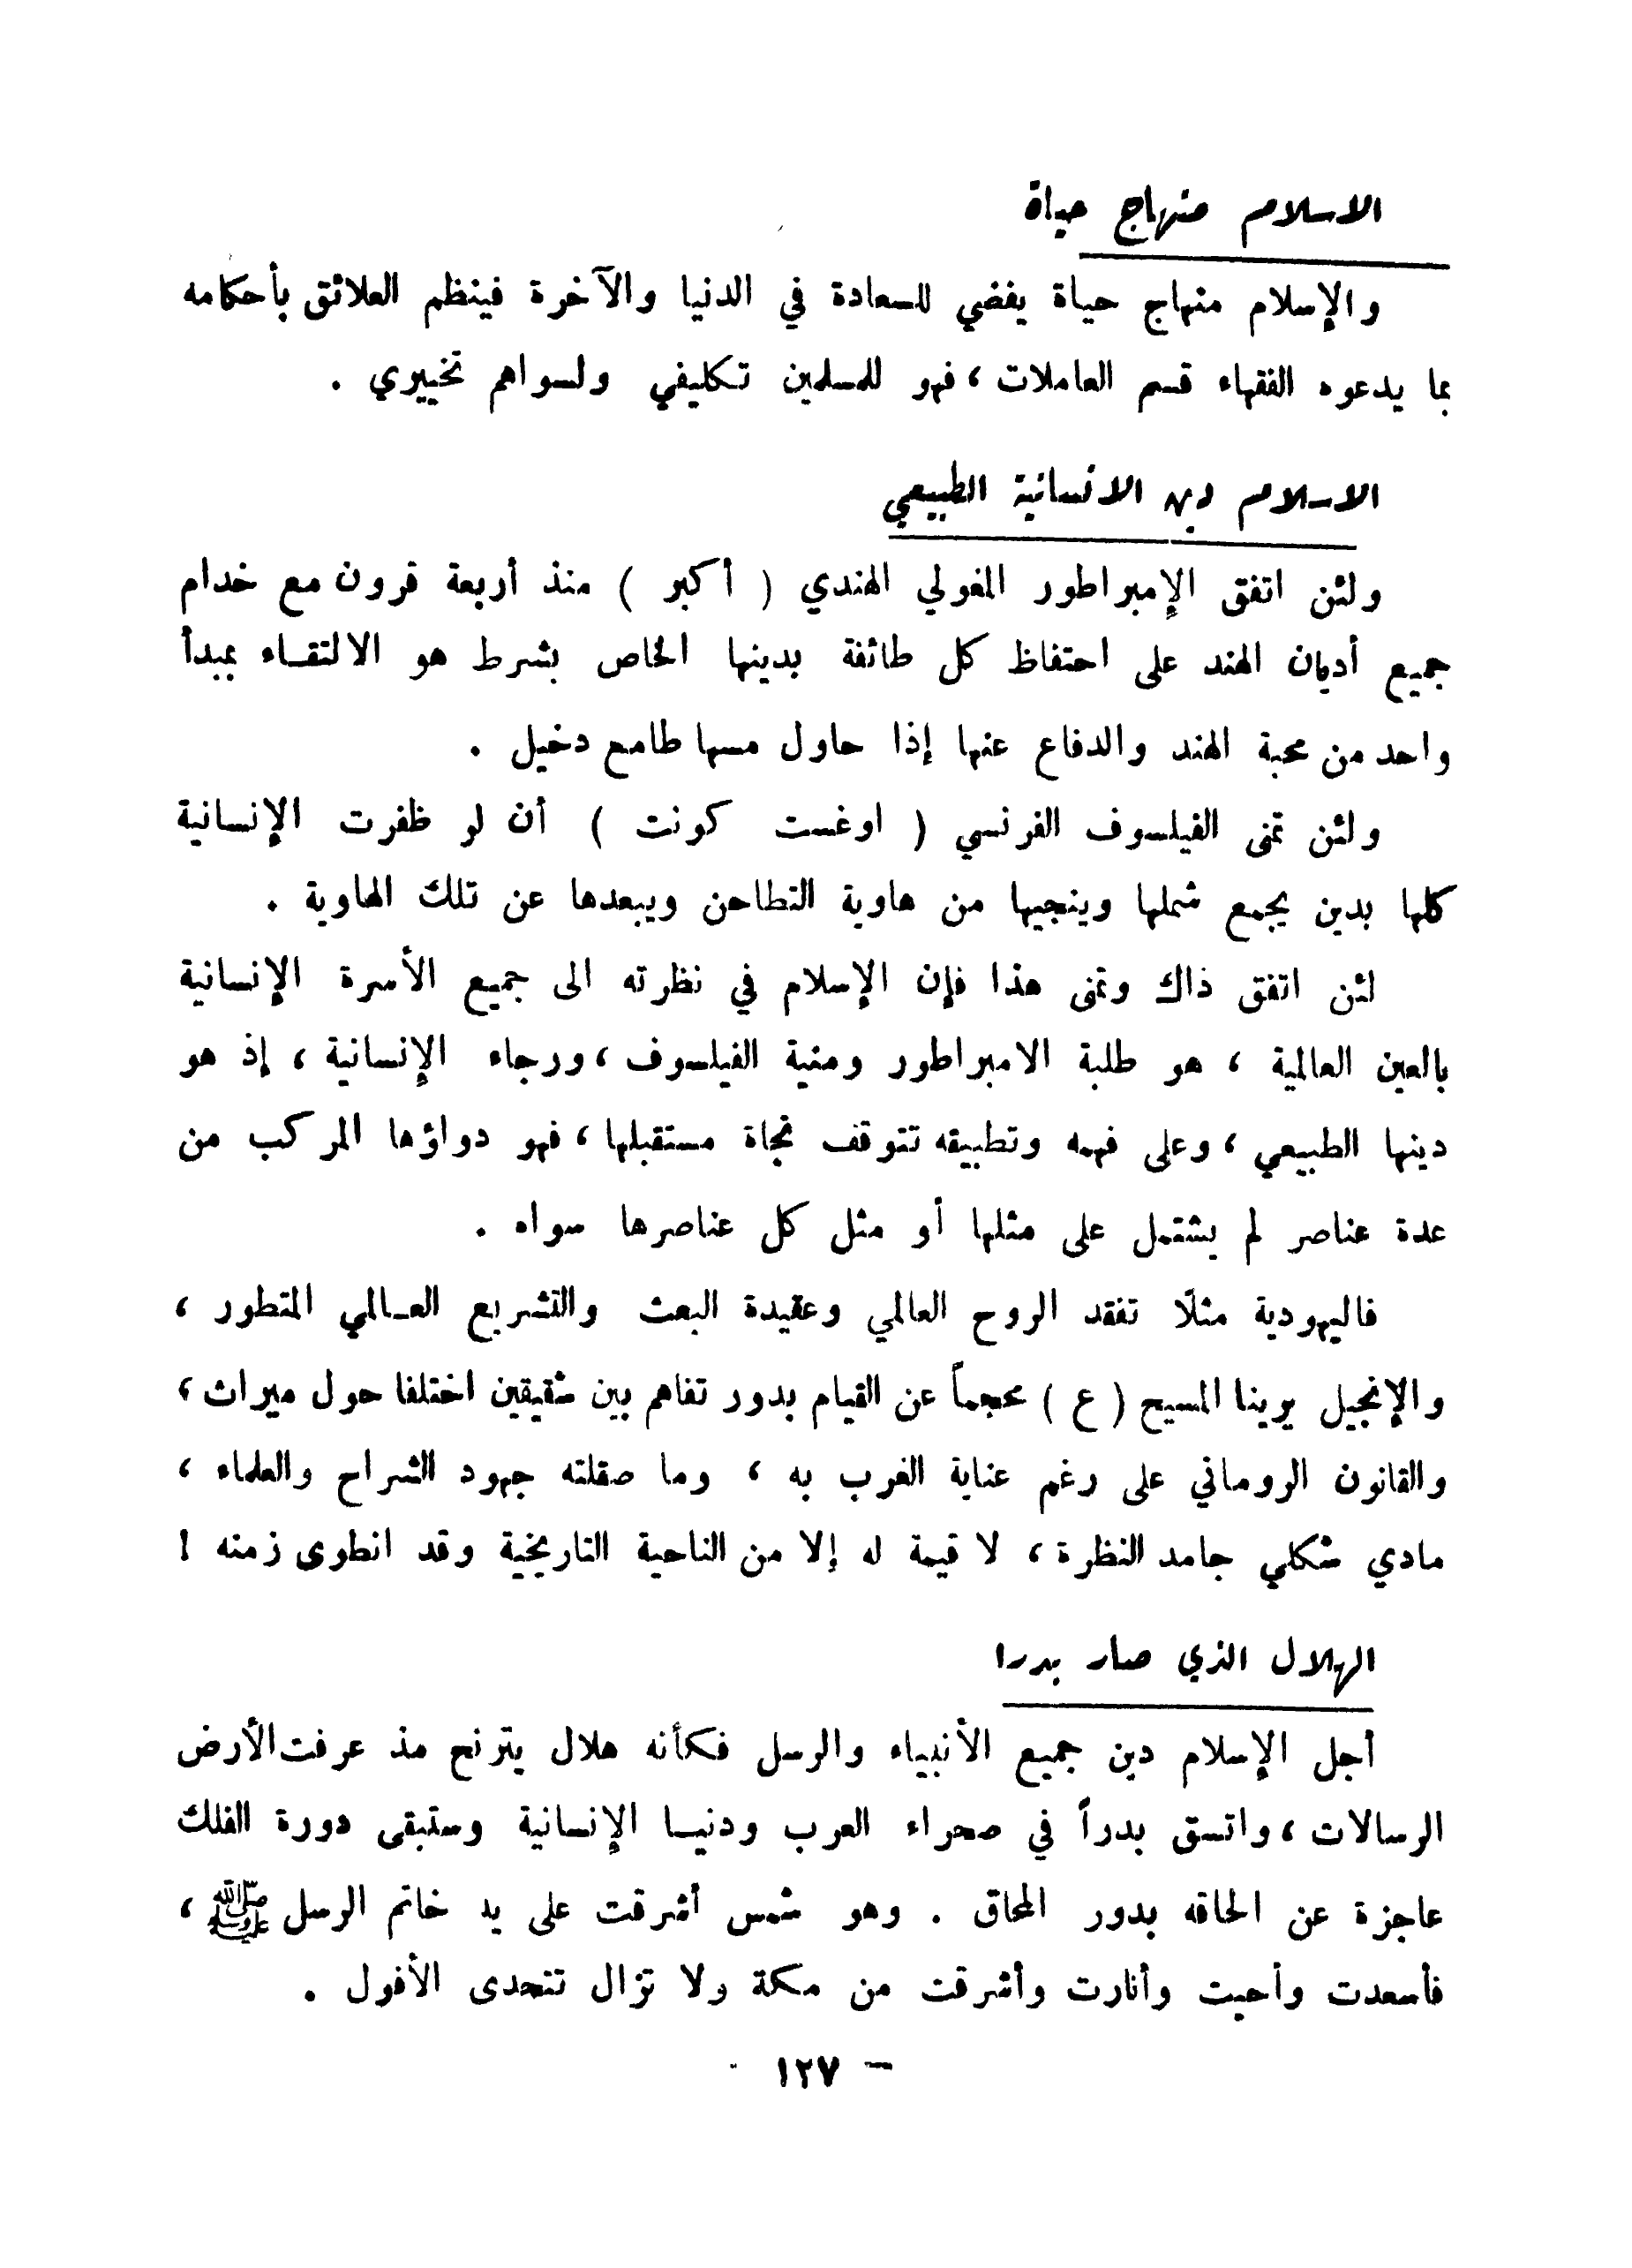 الاسلام منهاج حياة
والإسلام منهاج حياة يفضي للسعادة في الدنيا والآخرة فينظم العلائق بأحكامه
بما يدعوه الفقهاء قسم العاملات ، فهو للمسلمين تكليفي ولسواهم تخييري .
الاسلام دين الانسانية الطبيعي
ولئن اتفق الإمبراطور المغولي الهندي ( أكبر ) منذ أربعة قرون مع خدام
جميع أديان الهند على احتفاظ كل طائفة بدينها الخاص بشرط هو الالتقاء بمبدأ
واحد من محبة الهند والدفاع عنها إذا حاول مسها طامع دخيل .
ولئن تمنى الفيلسوف الفرنسي ( اوغست كونت ) أن لو ظفرت الإنسانية
كلها بدين يجمع شملها وينجيها من هاوية التطاحن ويبعدها عن تلك الهاوية .
لئن اتفق ذاك وتمنى هذا فإن الإسلام في نظرته الى جميع الأسرة الإنسانية
بالعين العالمية ، هو طلبة الامبراطور ومنية الفيلسوف ، ورجاء الإنسانية ، إذ هو
دينها الطبيعي ، وعلى فهمه وتطبيقه تتوقف نجاة مستقبلها ، فهو دواؤها المركب من
عدة عناصر لم يشتمل على مثلها أو مثل كل عناصرها سواه .
فاليهودية مثلًا تفقد الروح العالمي وعقيدة البعث والتشريع العالمي المتطور ،
والإنجيل يرينا المسيح ( ع ) محجماً عن القيام بدور تفاهم بين شقيقين اختلفا حول ميراث ،
والقانون الروماني على رغم عناية الغرب به ، وما صقلته جهود الشراح والعلماء ،
مادي شكلي جامد النظرة ، لا قيمة له إلا من الناحية التاريخية وقد انطوى زمنه !
الهلال الذي صار بدرا
أجل الإسلام دين جميع الأنبياء والرسل فكأنه هلال يترنح مذ عرفت الأرض
الرسالات ، واتسق بدراً في صحراء العرب ودنيا الإنسانية وستبقى دورة الفلك
عاجزة عن الحاقه بدور المحاق . وهو شمس أشرقت على يد خاتم الرسل ﷺ ،
فأسعدت وأحيت وأنارت وأشرقت من مكة ولا تزال تتحدى الأفول .
– ١٢٧